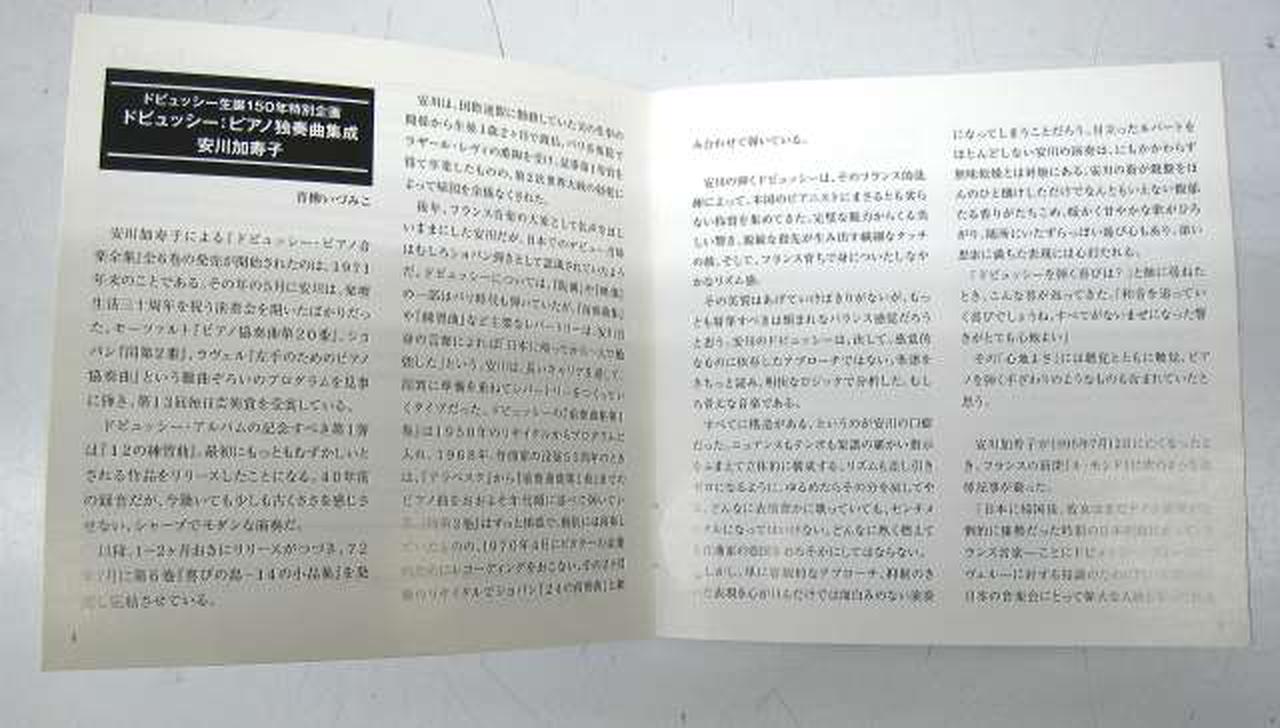 ドビュッシー生誕150年特別企画
ドビュッシー:ピアノ独奏曲集成
安川加寿子
青柳いづみこ
安川加寿子による『ドビュッシー・ピアノ音
楽全集』全6巻の発売が開始されたのは、1971
年末のことである。その年の5月に安川は、楽壇
生活三十周年を祝う演奏会を開いたばかりだっ
た。モーツァルト『ピアノ協奏曲第20番』、ショ
パン『同第2番』、ラヴェル『左手のためのピアノ
協奏曲』という難曲ぞろいのプログラムを見事
に弾き、第13回毎日芸術賞を受賞している。
ドビュッシー・アルバムの記念すべき第1弾
は『12の練習曲』。最初にもっともむずかしいと
される作品をリリースしたことになる。40年前
の録音だが、今聴いても少しも古くささを感じさ
せない、シャープでモダンな演奏だ。
以降、1-2ヶ月おきにリリースがつづき、72
年7月に第6巻『喜びの島-14の小品集』を発
売し完結させている。
安川は、国際連盟に勤務していた父の仕事の
関係から生後1歳2ヶ月で渡仏。パリ音楽院で
ラザール・レヴィの薫陶を受け、
得て卒業したものの、第2次世界大戦の勃発に
よって帰国を余儀なくされた。
後年、フランス音楽の大家として名声をほし
いままにした安川だが、日本でのデビュー当時
はむしろショパン弾きとして認識されていたよう
だ。ドビュッシーについては、『版画』や『映像』
の一部はパリ時代も弾いていたが、『前奏曲集』
や『練習曲』など主要なレパートリーは、安川自
身の言葉によれば「日本に帰ってから一人で勉
強した」という。安川は、長いキャリアを通して、
周到に準備を重ねてレパートリーをつくってい
くタイプだった。ドビュッシーの『前奏曲集第1
巻』は1950年のリサイタルからプログラムに
入れ、1968年、作曲家の没後50周年のとき
は、『アラベスク』から『前奏曲集第1巻』までの
ピアノ曲をおおよそ年代順に並べて弾いてい
ていたものの、1970年4月にビクターの企画
のためにレコーディングをおこない、その2ヶ月
後のリサイタルでショパン『24の前奏曲』と組
み合わせて弾いている。
安川の弾くドビュッシーは、そのフランス的洗
練によって、本国のピアニストにまさるとも劣ら
ない称賛を集めてきた。完璧な脱力からくる美
しい響き、敏感な指先が生み出す繊細なタッチ
の綾、そして、フランス育ちで身についたしなや
かなリズム感。
その美質はあげていけばきりがないが、もっ
とも特筆すべきは類まれなバランス感覚だろう
と思う。安川のドビュッシーは、決して、感覚的
なものに依存したアプローチではない。楽譜を
きちっと読み、明快なロジックで分析した、むし
ろ骨太な音楽である。
すべてに構造がある、というのが安川の口癖
だった。ニュアンスもテンポも楽譜の細かい指示
をふまえて立体的に構成する。リズムも差し引き
ゼロになるように、ゆるめたらその分を戻してや
る。どんなに表情豊かに歌っていても、センチメ
ンタルになってはいけない。どんなに熱く燃えて
も作曲家の意図をおろそかにしてはならない。
しかし、単に客観的なアプローチ、抑制のき
いた表現を心がけるだけでは面白みのない演奏
になってしまうことだろう。目立ったルバートを
ほとんどしない安川の演奏は、にもかかわらず
無味乾燥とは対極にある。安川の指が鍵盤をほ
んのひと撫でしただけでなんともいえない馥郁
たる香りがたちこめ、暖かく甘やかな歌がひろ
がり、随所にいたずらっぽい遊び心もあり、深い
思索に満ちた表現には心打たれる。
「ドビュッシーを弾く喜びは?」と師に尋ねた
とき、こんな答が返ってきた。「和音を追ってい
く喜びでしょうね。すべてがないまぜになった響
きがとても心地よい」
その「心地よさ」には聴覚とともに触覚、ピア
ノを弾く手ざわりのようなものも含まれていたと
思う。
安川加寿子が1996年7月12日に亡くなったと
き、フランスの新聞『ル・モンド』に次のような追
悼記事が載った。
「日本に帰国後、彼女は
倒的に優勢だった時期の日本
ランス音楽―ことにドビュッシー
ヴェル―に対する
日本の音楽会にとって偉大な